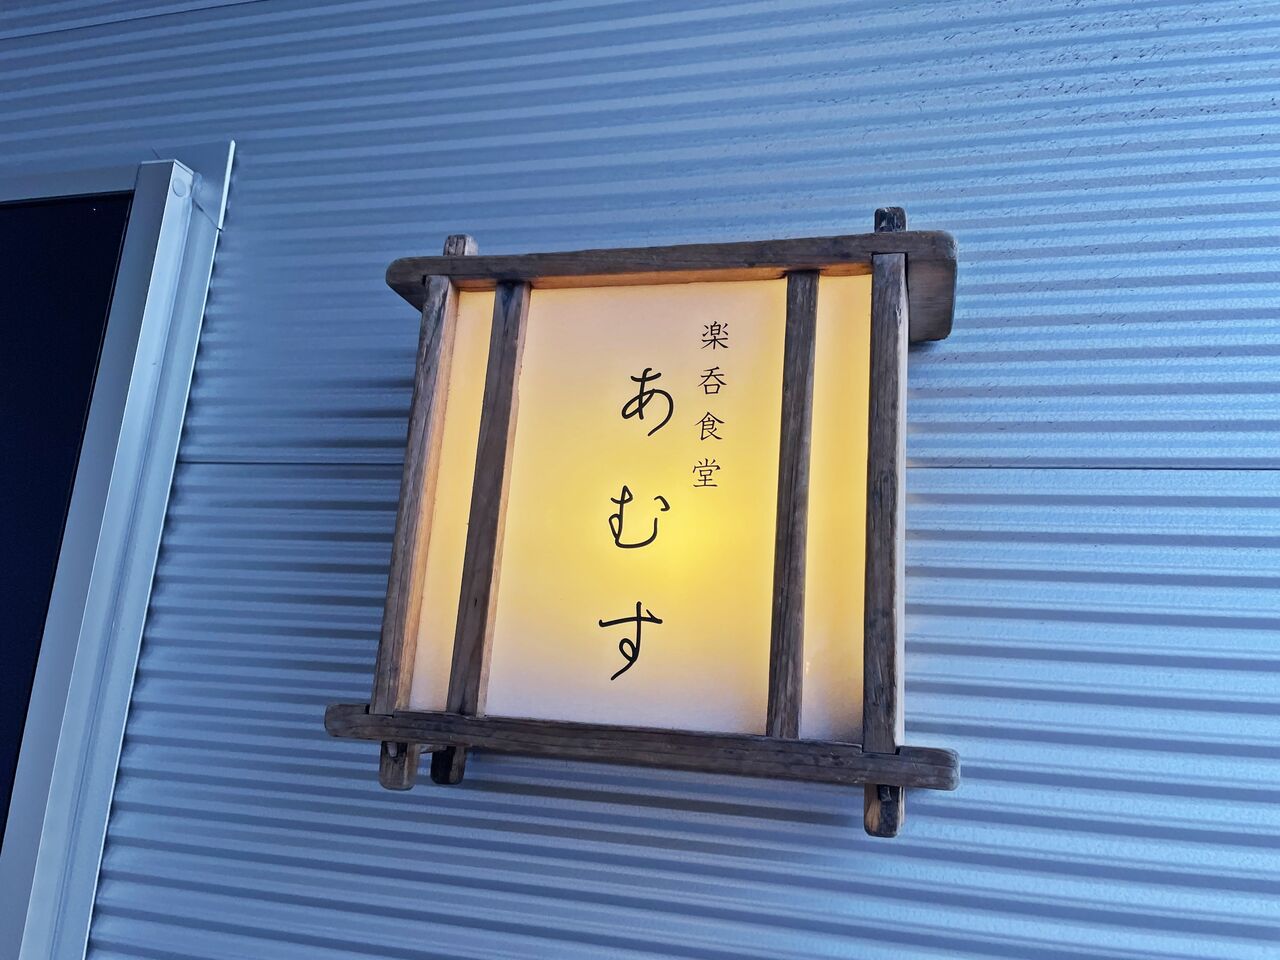 楽呑食堂
あむす